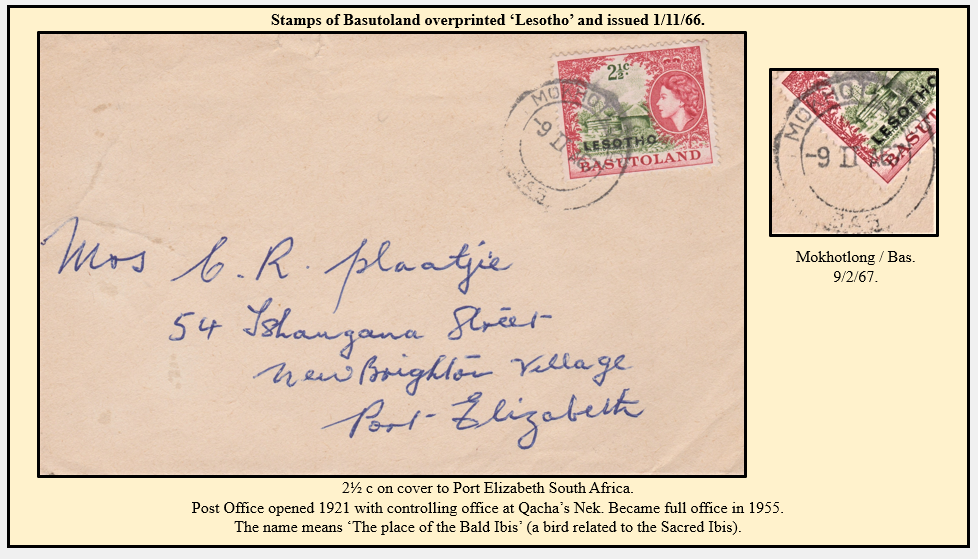 Stamps of Basutoland overprinted ‘Lesotho’ and issued 1/11/66.
2½c
LESOTHO
BASUTOLAND
-9 D
Mrs C. R. Plaatjie
54 Tshangana Street
New Brighton Village
Port Elizabeth
LESOTHO
-9 D
Mokhotlong / Bas.
9/2/67.
2½ c on cover to Port Elizabeth South Africa.
Post Office opened 1921 with controlling office at Qacha’s Nek. Became full office in 1955.
The name means ‘The place of the Bald Ibis’ (a bird related to the Sacred Ibis).